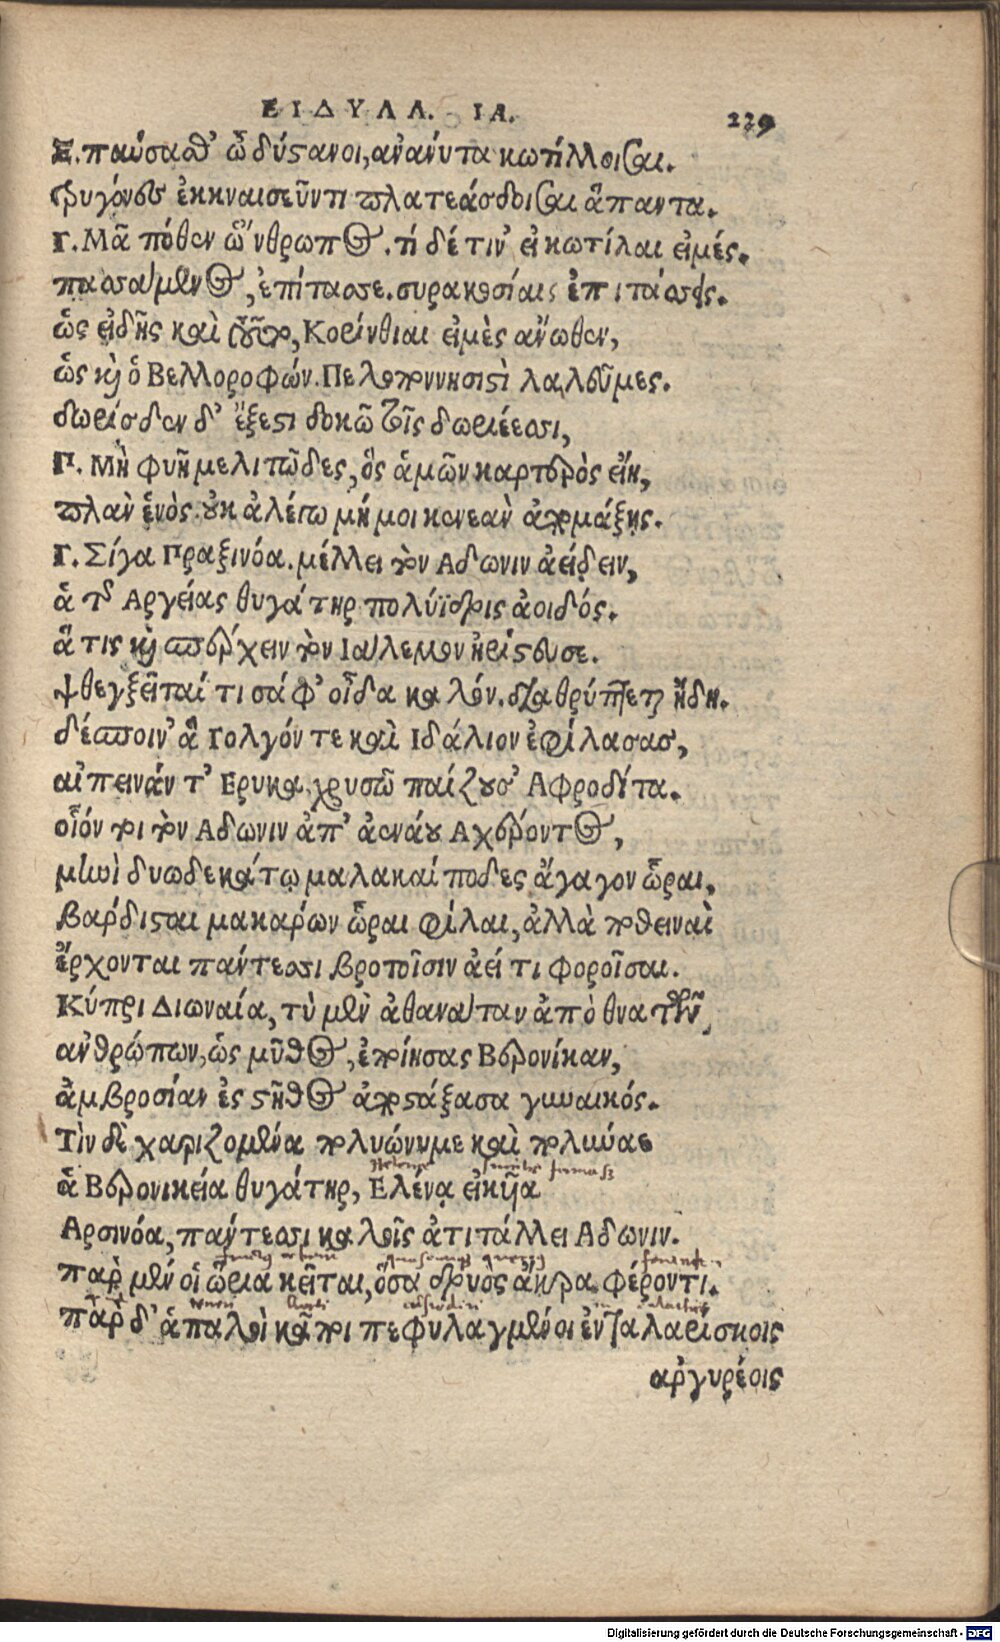 ΕΙΔΥΛΛ. ΙΑ. 239
Ξ. παύσασθ' ὦ δύστανοι, ἀνάνυτα κωτίλλοισαι.
τρυγόνες ἐκκναισεῦντι πλατειάσδοισαι ἅπαντα.
Γ. Μᾶ πόθεν ὤνθρωπος. τί δέ τιν' εἰ κωτίλαι εἰμές.
πασάμενος, ἐπίτασσε. συρακοσίαις ἐπιτάσσεις.
ὡς εἰδῇς καὶ τοῦτο, Κορίνθιαι εἰμὲς ἄνωθεν,
ὡς καὶ ὁ Βελλοροφών. Πελοποννησιστὶ λαλεῦμες.
δωρίσδεν δ' ἔξεστι δοκῶ τοῖς δωριέεσσι,
Π. Μὴ φυῇ μελιτῶδες, ὃς ἁμῶν καρτερὸς εἴη,
πλὰν ἑνός. οὐκ ἀλέγω μή μοι κενεὰν ἀπομάξῃς.
Γ. Σίγα Πραξινόα. μέλλει τὸν Αδωνιν ἀείδειν,
ἁ τᾶς Αργείας θυγάτηρ πολύϊδρις ἀοιδός.
ἅτις καὶ πέρχειν τὸν Ιάλεμον ἠρίστευσε.
φθεγξεῖταί τι σάφ' οἶδα καλόν. διαθρύπτεται ἤδη.
δέσποιν' ἃ Γολγόν τε καὶ Ιδάλιον ἐφίλασας,
αἰπεινάν τ' Ερυκα, χρυσῶ παίζουσ' Αφροδίτα.
οἷόν τοι τὸν Αδωνιν ἀπ' ἀενάου Αχέροντος,
μηνὶ δυωδεκάτῳ μαλακαίποδες ἄγαγον ὧραι,
βάρδισται μακάρων ὧραι φίλαι, ἀλλὰ ποθειναὶ
ἔρχονται πάντεσσι βροτοῖσιν ἀεί τι φοροῖσαι.
Κύπρι Διωναία, τὺ μὲν ἀθανάταν ἀπὸ θνατῶν
ἀνθρώπων, ὡς μῦθος, ἐποίησας Βερονίκαν,
ἀμβροσίαν ἐς στῆθος ἀποστάξασα γυναικός.
Τὶν δὲ χαριζομένα πολυώνυμε καὶ πολύναε
ἁ Βερονικεία θυγάτηρ, Ελένᾳ εἰκυῖα
Αρσινόα, πάντεσσι καλοῖς ἀτιτάλλει Αδωνιν.
παρ μέν οἱ ὥρια κεῖται, ὅσα δρυὸς ἄκρα φέροντι.
παρ δ' ἁπαλοὶ κᾶποι πεφυλαγμένοι ἐν ταλαρίσκοις
ἀργυρέοις
Digitalisierung gefördert durch die Deutsche Forschungsgemeinschaft - DFG